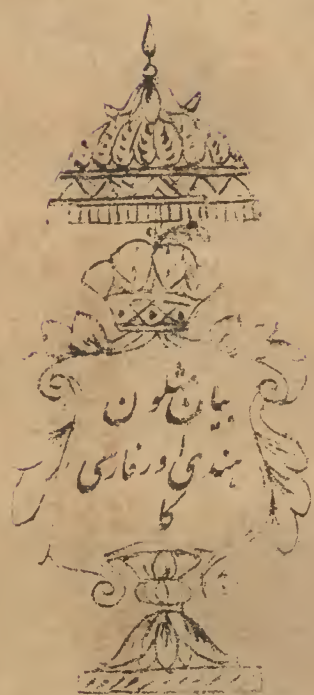 بیان مثلون
ہندی اور فارسی
کا